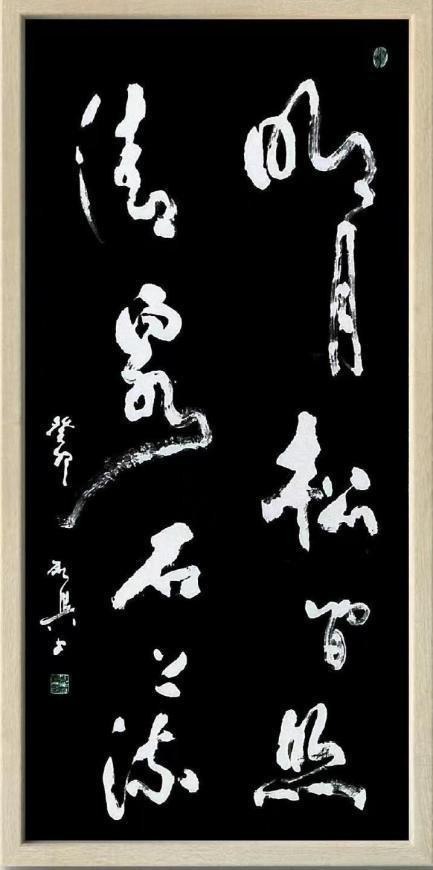 明月松間照
清泉石上流
癸卯